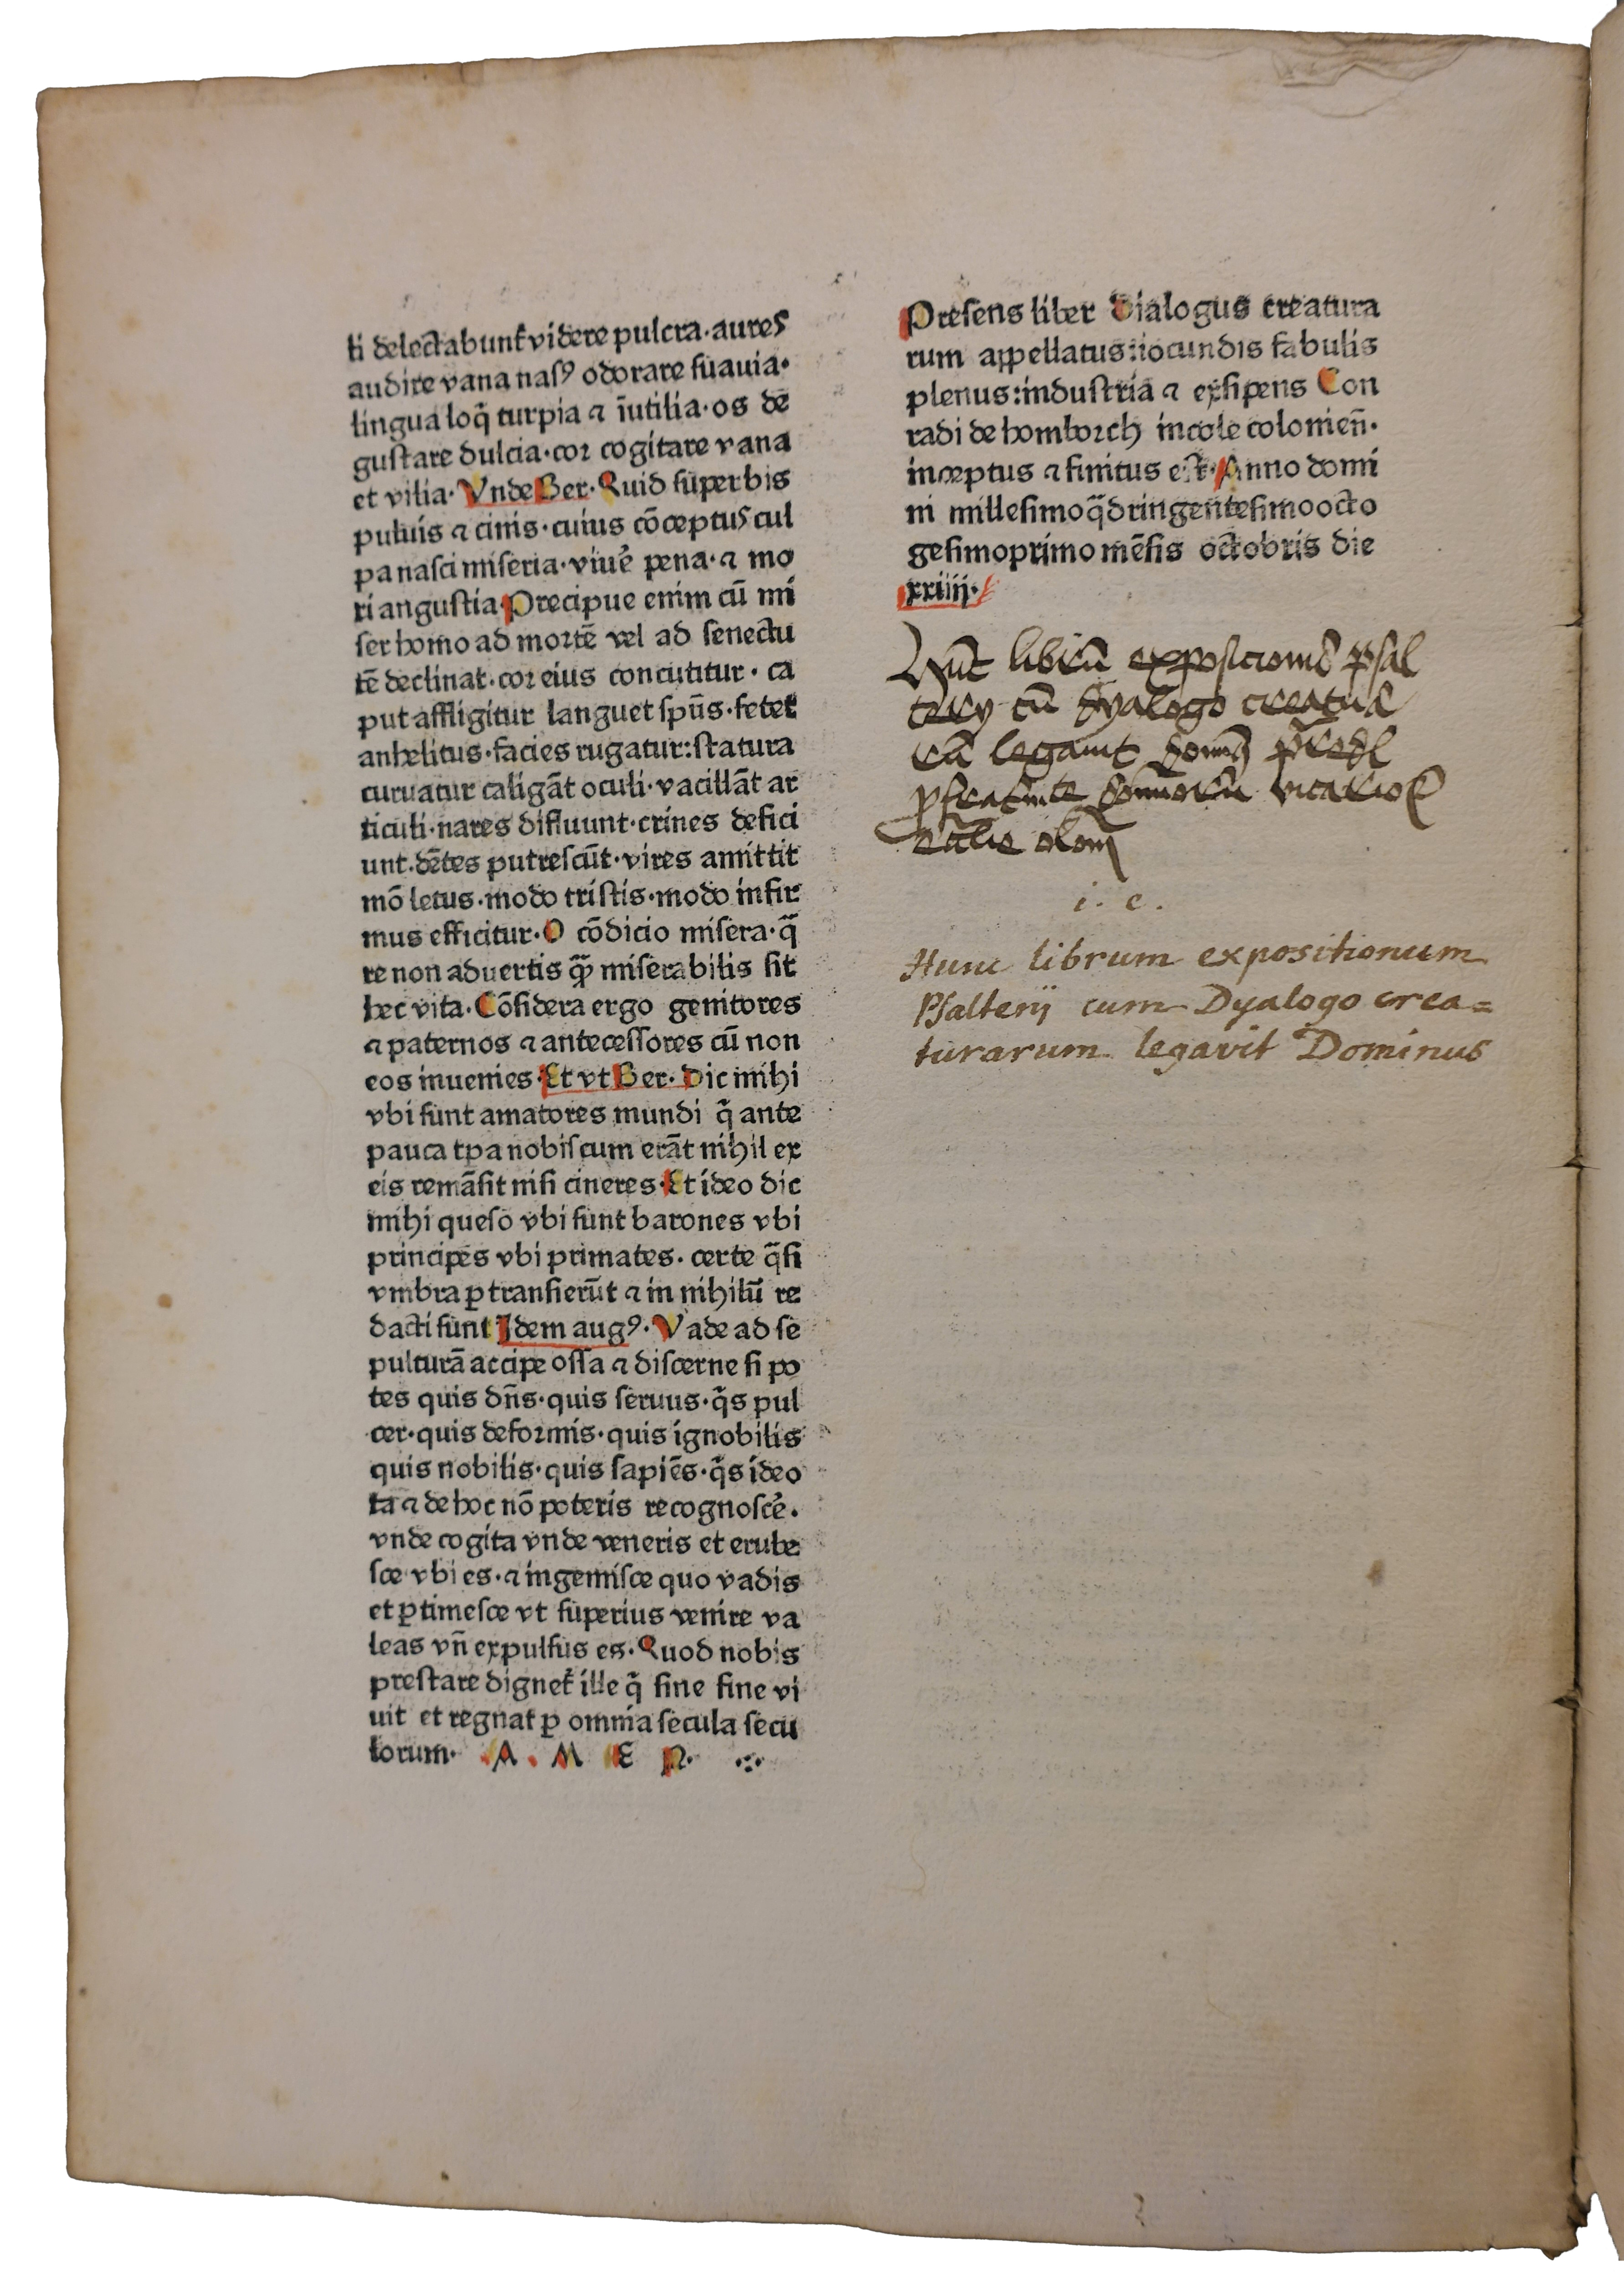 ti delectabunt̃ videre pulcra·aures
audire vana nasꝰ odorare suauia·
lingua loq̃ turpia ⁊ ĩutilia·os de
gustare dulcia·cor cogitare vana
et vilia· Vnde Ber·Quid superbis
puluis ⁊ cinis·cuius cõceptus cul
pa nasci miseria·viuẽ pena·⁊ mo
ri angustia Precipue enim cũ mi
ser homo ad mortẽ vel ad senectu
tẽ declinat·cor eius concutitur·ca
put affligitur languet spũs·fetet
anhelitus·facies rugatur:statura
curuatur caligãt oculi·vacillãt ar
ticuli·nares diffluunt·crines defici
unt·dẽtes putrescũt·vires amittit
mõ letus·modo tristis·modo infir
mus efficitur·O cõdicio misera·q̃
re non aduertis q̃ꝫ miserabilis sit
hec vita·Cõsidera ergo genitores
⁊ paternos ⁊ antecessores cũ non
eos inuenies·Et vt Ber·Dic mihi
vbi sunt amatores mundi q̃ ante
pauca tꝑa nobiscum erãt nihil ex
eis remãsit nisi cineres·Et ideo dic
mihi queso vbi sunt barones vbi
principes vbi primates·certe q̃si
vmbra ꝑtransierũt ⁊ in nihilũ re
dacti sunt Idem augꝰ·Vade ad se
pulturã accipe ossa ⁊ discerne si po
tes quis dñs·quis seruus·q̃s pul
cer·quis deformis·quis ignobilis
quis nobilis·quis sapiẽs·q̃s ideo
ta ⁊ de hoc nõ poteris recognoscẽ·
vnde cogita vnde veneris et erube
sce vbi es·⁊ ingemisce quo vadis
et ꝑtimesce vt superius venire va
leas vñ expulsus es·Quod nobis
prestare dignet̃ ille q̃ sine fine vi
uit et regnat ꝑ omnia secula secu
lorum· A · M E N·
Presens liber Dialogus creatura
rum appellatus:iocundis fabulis
plenus:industria ⁊ exsipens Con
radi de homborch incole colonieñ·
inceptus ⁊ finitus est·Anno domi
ni millesimoq̃dringentesimoocto
gesimoprimo mẽsis octobris die
xxiiij·
Hũc librũ exposicionũ psal
terij cũ dyalogo creatu
rarũ legauit
i. e.
Hunc librum expositionum
Psalterij cum Dyalogo crea=
turarum legavit Dominus